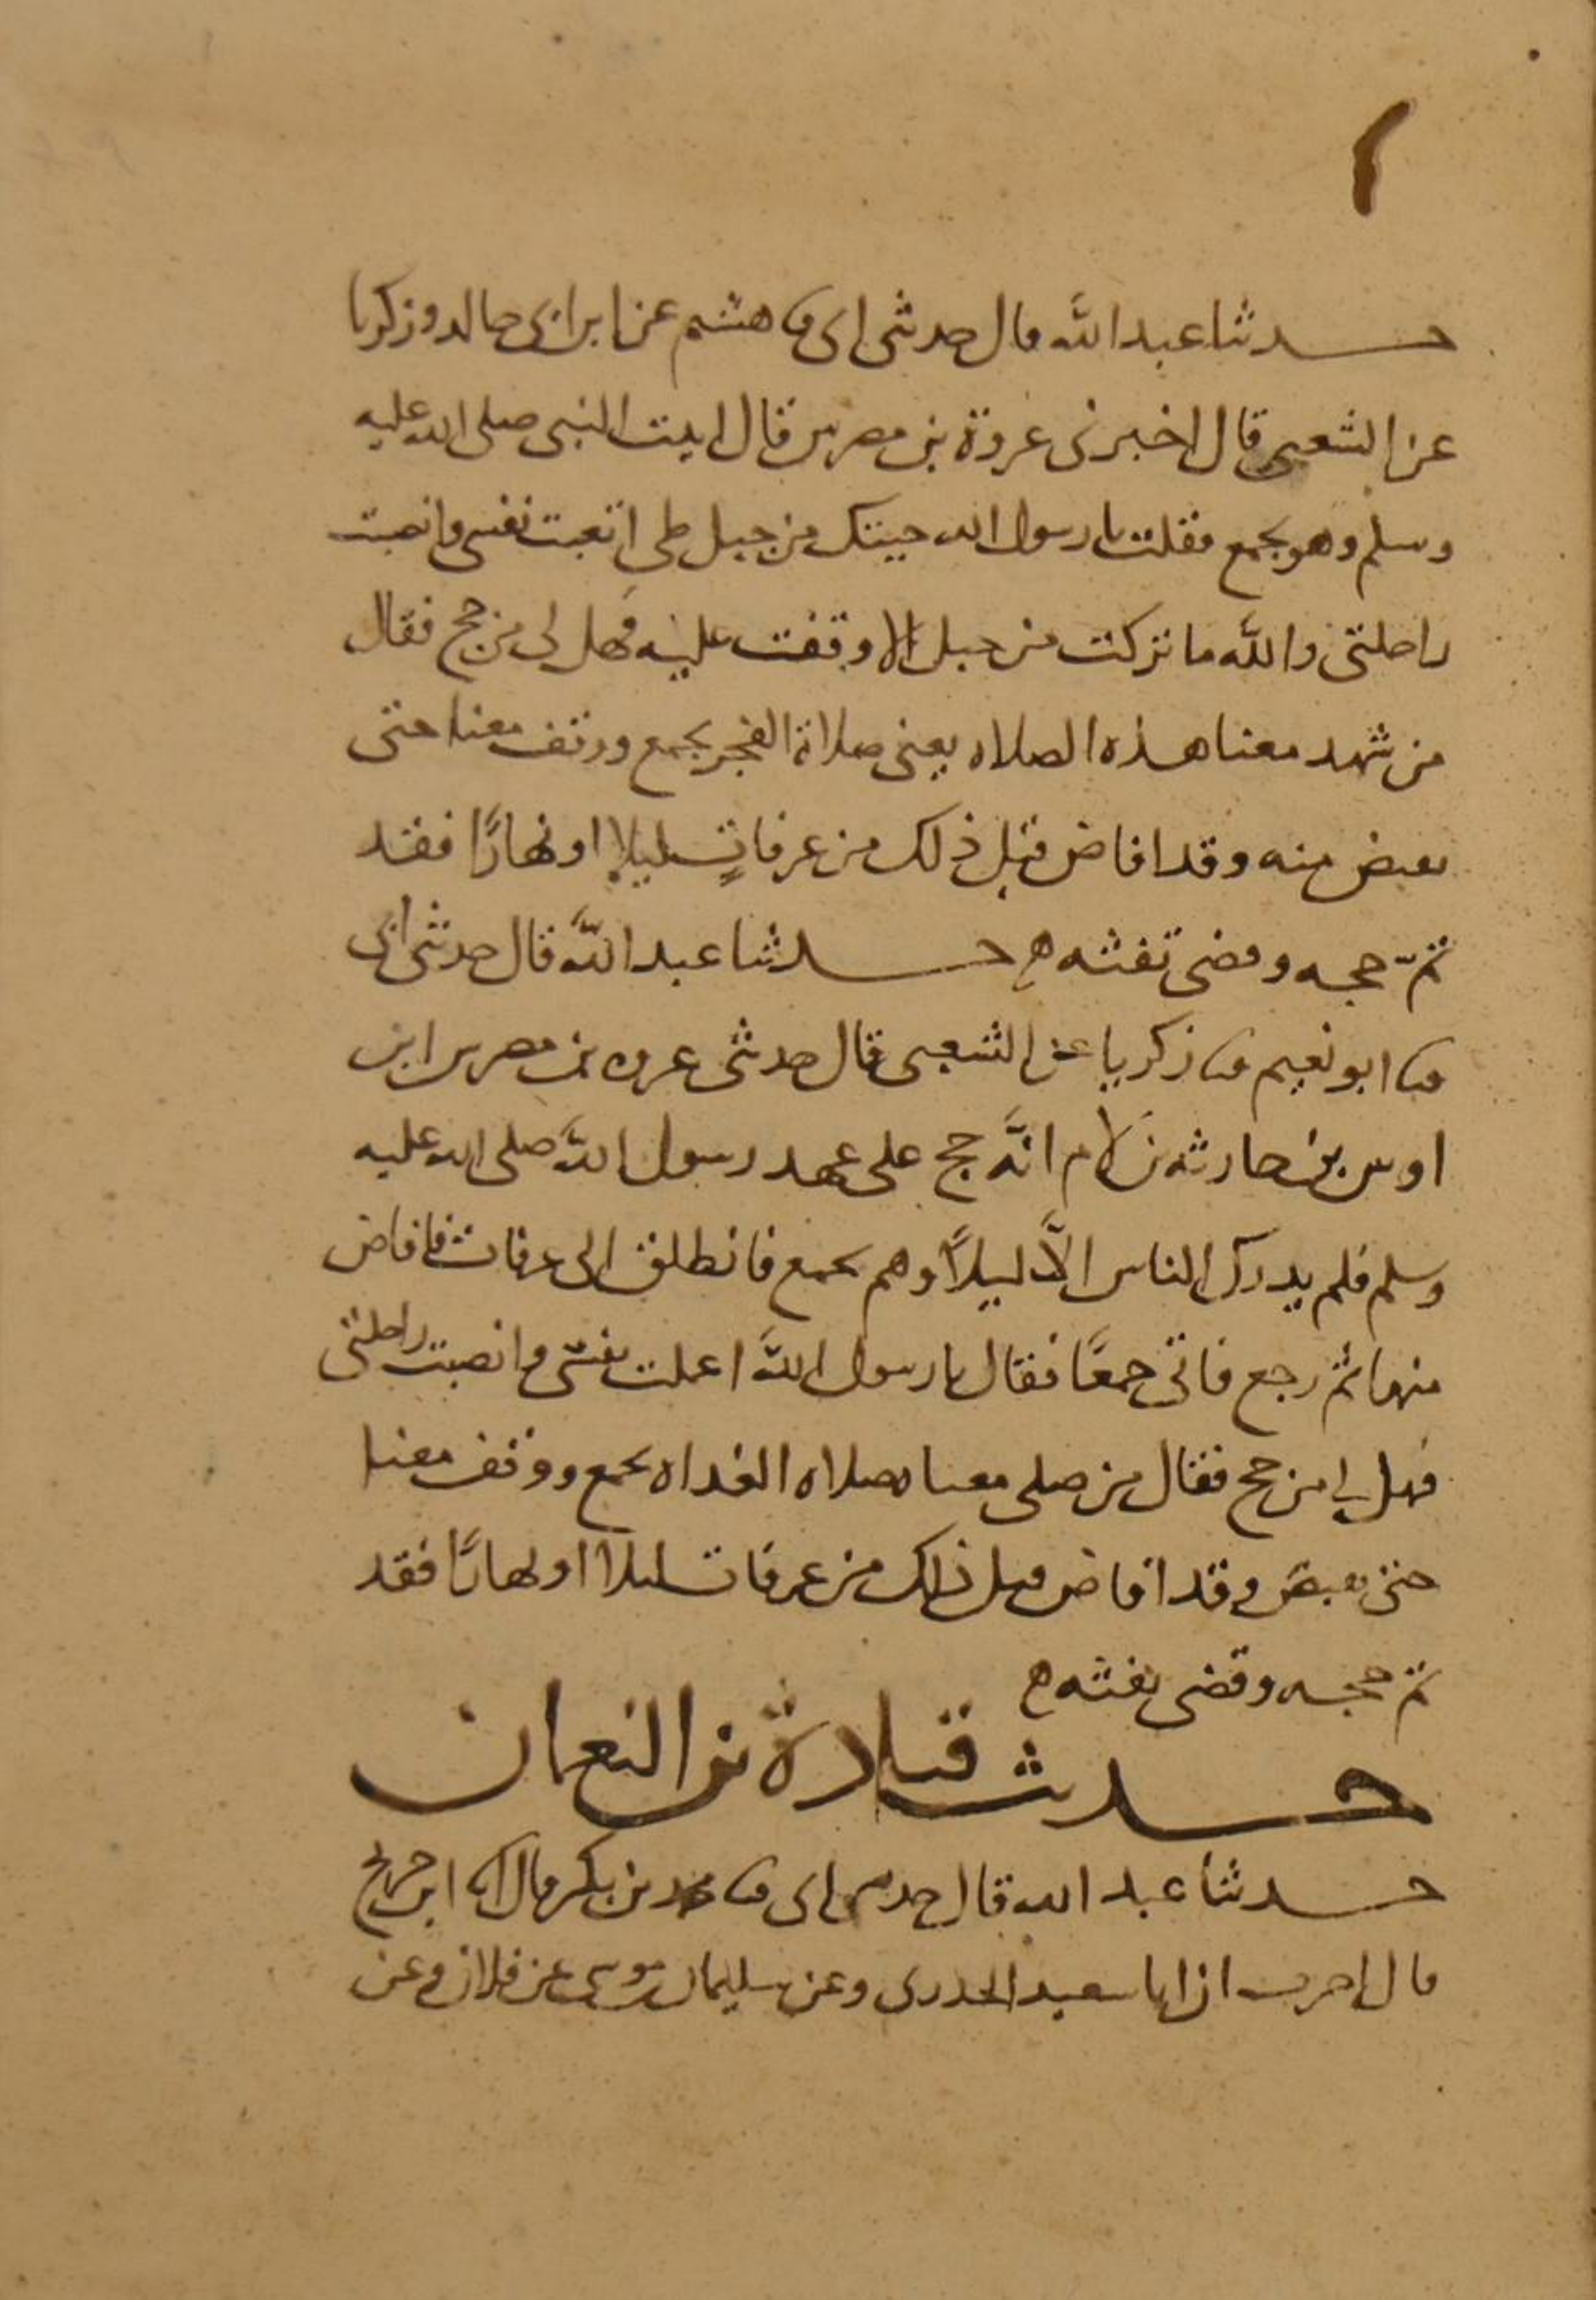 حدثنا عبد الله قال حدثنى ابى ثنا هشيم عن ابن ابى خالد وزكريا
عن الشعبى قال اخبرنى عروة بن مضرس قال اتيت النبى صلى الله عليه
وسلم وهو بجمع فقلت يا رسول الله جيتك من جبلى طى اتعبت نفسى وانصبت
راحلتى والله ما تركت من حبل الا وقفت عليه فهل لى من حج فقال
من شهد معنا هذه الصلاه يعنى صلاة الفجر بجمع ووقف معنا حتى
نفيض منه وقد افاض قبل ذلك من عرفات ليلا او نهارًا فقد
تمّ حجه وقضى تفثه ه حدثنا عبد الله قال حدثنى ابى
ثنا ابو نعيم ثنا زكريا عن الشعبى قال حدثنى عروه بن مضرس ابن
اوس بن حارثه بن لام انّه حج على عهد رسول الله صلى الله عليه
وسلم فلم يدرك الناس الّا ليلًا وهم بجمع فانطلق الى عرفات فافاض
منها ثم رجع فاتى جمعًا فقال يا رسول الله اعملت نفسى وانصبت راحلتى
فهل لى من حج فقال من صلى معنا صلاه الغداه بجمع ووقف معنا
حتى نفيض وقد افاض قبل ذلك من عرفات ليلا او نهارًا فقد
تم حجه وقضى تفثه ه
حديث قتادة بن النعمان
حدثنا عبد الله قال حدثنى ابى ثنا محمد بن بكر قال انا ابن جريج
قال اخبرت ان ابا سعيد الخدرى وعن سليمان بن موسى عن فلان وعن